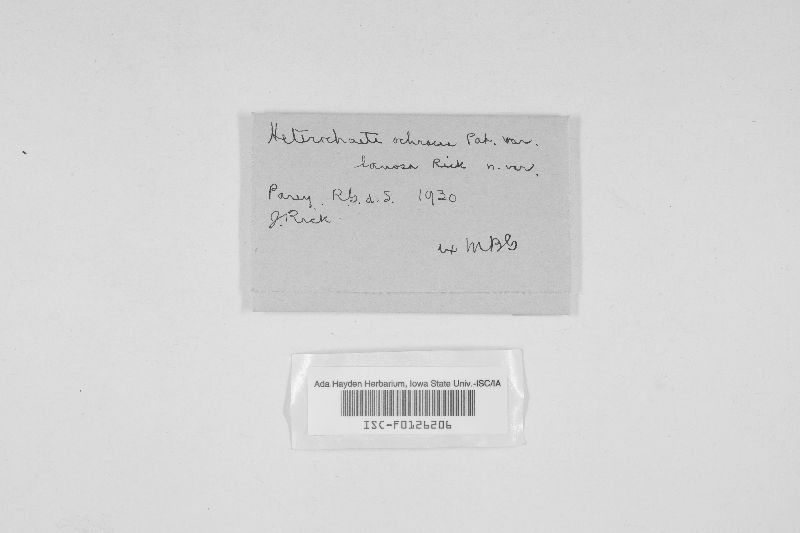 Heterochaete ochracea Pat. var.
lanosa Rick n. var.
Parecy R.G. d. S. 1930
J. Rick
ex MBG
Ada Hayden Herbarium, Iowa State Univ.-ISC/IA
ISC-F0126206